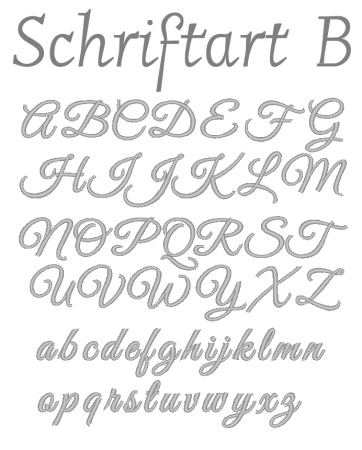 Schriftart B
ABCDEFG
HIJJKLM
NOPQRST
UVWYXZ
abcdefghijklmn
opqrstuvwyxz